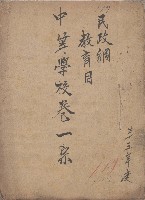 民政綱
教育目
中等學校卷一宗
五年度